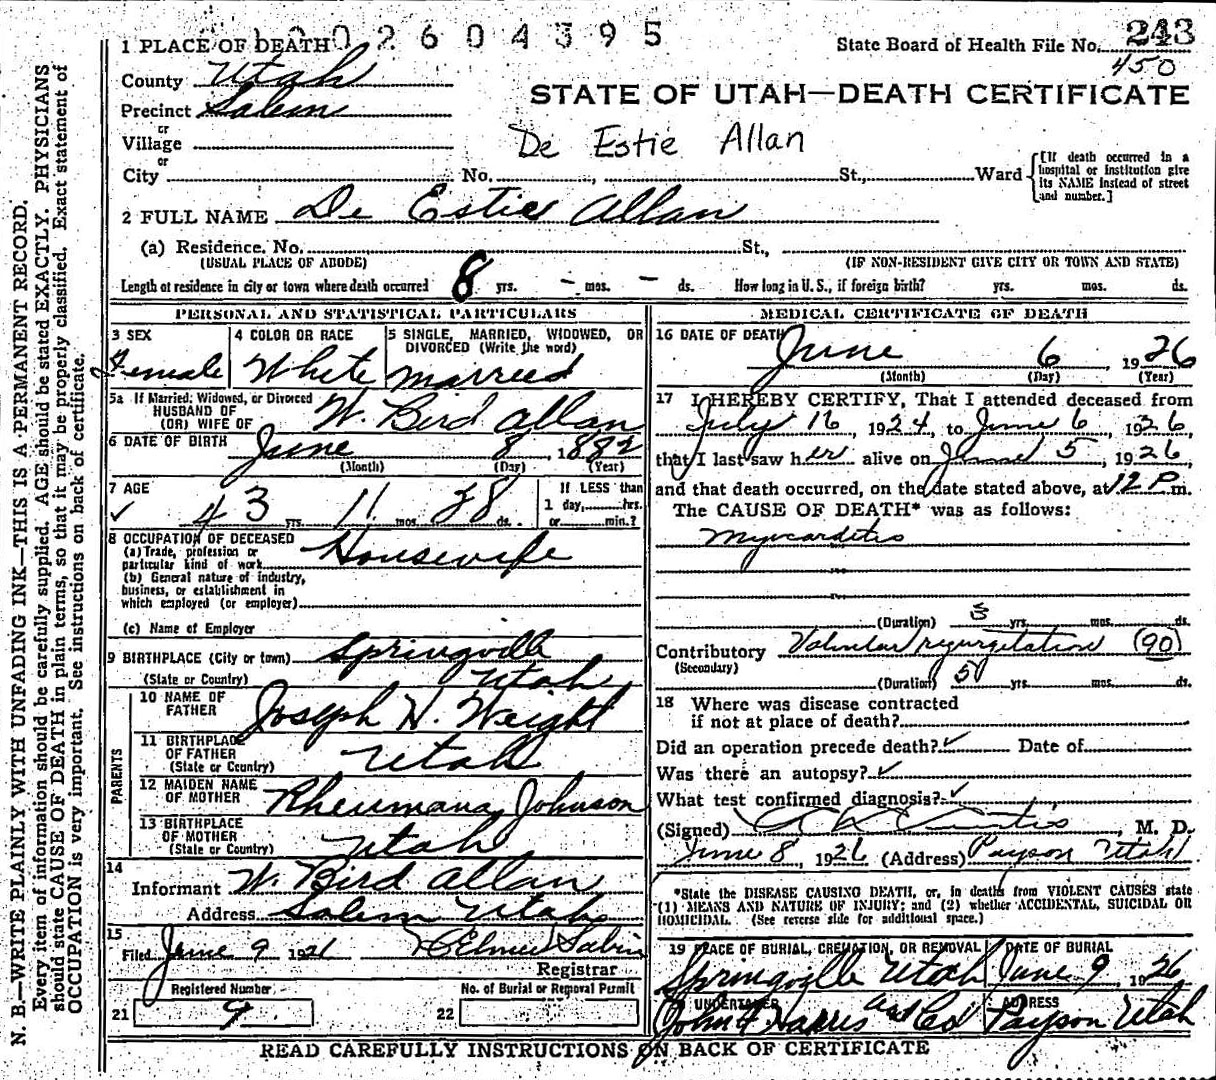 2604395
1 PLACE OF DEATH
State Board of Health File No. 243
450
County Utah
Precinct Salem
or
Village
or
City No. , St., Ward
[If death occurred in a hospital or institution give its NAME instead of street and number.]
STATE OF UTAH—DEATH CERTIFICATE
De Estie Allan
2 FULL NAME De Estie Allan
(a) Residence. No. St.,
(USUAL PLACE OF ABODE) (IF NON-RESIDENT GIVE CITY OR TOWN AND STATE)
Length of residence in city or town where death occurred 8 yrs. – mos. – ds. How long in U. S., if foreign birth? yrs. mos. ds.
PERSONAL AND STATISTICAL PARTICULARS
3 SEX
Female
4 COLOR OR RACE
White
5 SINGLE, MARRIED, WIDOWED, OR
DIVORCED (Write the word)
married
5a If Married, Widowed, or Divorced
HUSBAND OF
(OR) WIFE OF W. Bird Allan
6 DATE OF BIRTH June 8, 1882
(Month) (Day) (Year)
7 AGE
✓ 43 yrs. 11 mos. 28 ds.
If LESS than
1 day, hrs.
or min.?
8 OCCUPATION OF DECEASED
(a) Trade, profession or
particular kind of work Housewife
(b) General nature of industry,
business, or establishment in
which employed (or employer)
(c) Name of Employer
9 BIRTHPLACE (City or town) Springville
(State or Country) Utah
PARENTS
10 NAME OF
FATHER Joseph H. Weight
11 BIRTHPLACE
OF FATHER
(State or Country) Utah
12 MAIDEN NAME
OF MOTHER Rheumana Johnson
13 BIRTHPLACE
OF MOTHER
(State or Country) Utah
14
Informant W. Bird Allan
Address Salem Utah
15
Filed June 9 1926 Elmer Sabin
Registrar
Registered Number
21 9
No. of Burial or Removal Permit
22
MEDICAL CERTIFICATE OF DEATH
16 DATE OF DEATH June 6 1926
(Month) (Day) (Year)
17 I HEREBY CERTIFY, That I attended deceased from
July 16, 1924, to June 6, 1926,
that I last saw her alive on June 5, 1926,
and that death occurred, on the date stated above, at 12 P m.
The CAUSE OF DEATH* was as follows:
Myocarditis
(Duration) 3 yrs. mos. ds.
Contributory Valvular regurgitation (90)
(Secondary)
(Duration) 5 yrs. mos. ds.
18 Where was disease contracted
if not at place of death?
Did an operation precede death? ✓ Date of
Was there an autopsy? ✓
What test confirmed diagnosis? ✓
(Signed) Curtis, M. D.
June 8, 1926 (Address) Payson Utah
*State the DISEASE CAUSING DEATH, or, in deaths from VIOLENT CAUSES state
(1) MEANS AND NATURE OF INJURY; and (2) whether ACCIDENTAL, SUICIDAL OR
HOMICIDAL. (See reverse side for additional space.)
19 PLACE OF BURIAL, CREMATION, OR REMOVAL
Springville Utah
DATE OF BURIAL
June 9 1926
UNDERTAKER
Harris and Co
ADDRESS
Payson Utah
READ CAREFULLY INSTRUCTIONS ON BACK OF CERTIFICATE
N. B.—WRITE PLAINLY WITH UNFADING INK—THIS IS A PERMANENT RECORD.
Every item of information should be carefully supplied. AGE should be stated EXACTLY. PHYSICIANS
should state CAUSE OF DEATH in plain terms, so that it may be properly classified. Exact statement of
OCCUPATION is very important. See instructions on back of certificate.